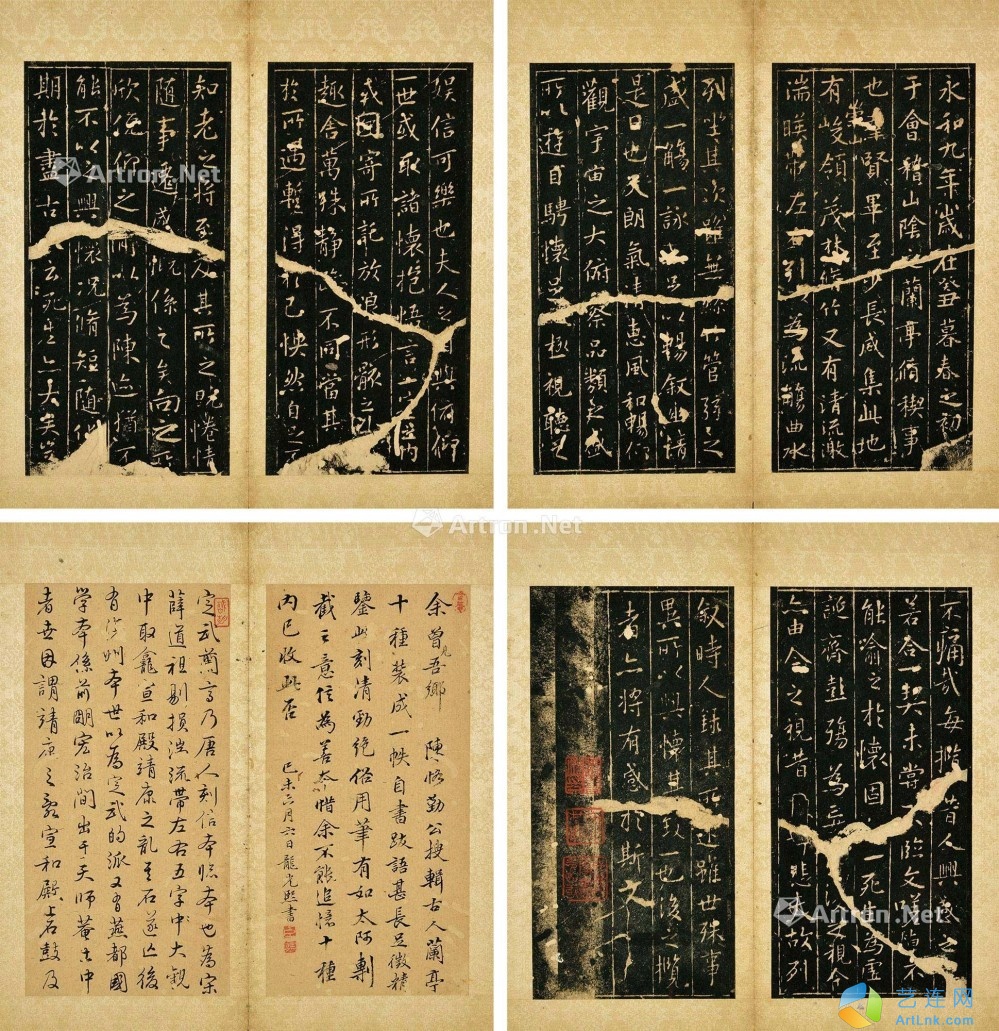 永和九年歲在癸丑暮春之初
于會稽山陰之蘭亭脩禊事
也賢畢至少長咸集此地
有峻領茂林脩竹又有清流激
湍暎帶左右引以為流觴曲水
列坐其次雖無絲竹管弦之
盛一觴一詠亦足以暢敘幽情
是日也天朗氣清惠風和暢仰
觀宇宙之大俯察品類之盛
所以遊目騁懷足以極視聽之
娛信可樂也夫人之相與俯仰
一世或取諸懷抱悟言一室之內
或因寄所託放浪形骸之外
趣舍萬殊靜躁不同當其
於所遇蹔得於己快然自足不
知老之將至及其所之既惓情
隨事遷感慨係之矣向之所
欣俛仰之閒以為陳迹猶不
能不以之興懷況脩短隨化
期於盡古人云死生亦大矣豈
不痛哉每攬昔人興感之
若合一契未嘗不臨文嗟悼不
能喻之於懷固一死生為虛
誕齊彭殤為妄之視今
亦由今之視昔悲夫故列
敘時人錄其所述雖世殊事
異所以興懷其致一也後之攬
者亦將有感於斯文
余曾見吾鄉 陳恪勤公搜輯古人蘭亭
十種裝成一帙自書跋語甚長足徵精
鑒此刻清勁絕俗用筆有如太阿剸
截之意信為善本惜余不能追憶十種
內已收此否
己未六月六日龍光熙書
定武蘭亭乃唐人刻信本臨本也為宋
薛道祖剔損湍流帶左右五字中大觀
中取龕宣和殿靖康之亂其石遂亡後
有定州本世以為定武的派又有燕都國
學本係前明宏治間出于天師菴土中
者世因謂靖康之亂宣和殿石鼓及
Artron.Net
艺连网
ArtLnk.com